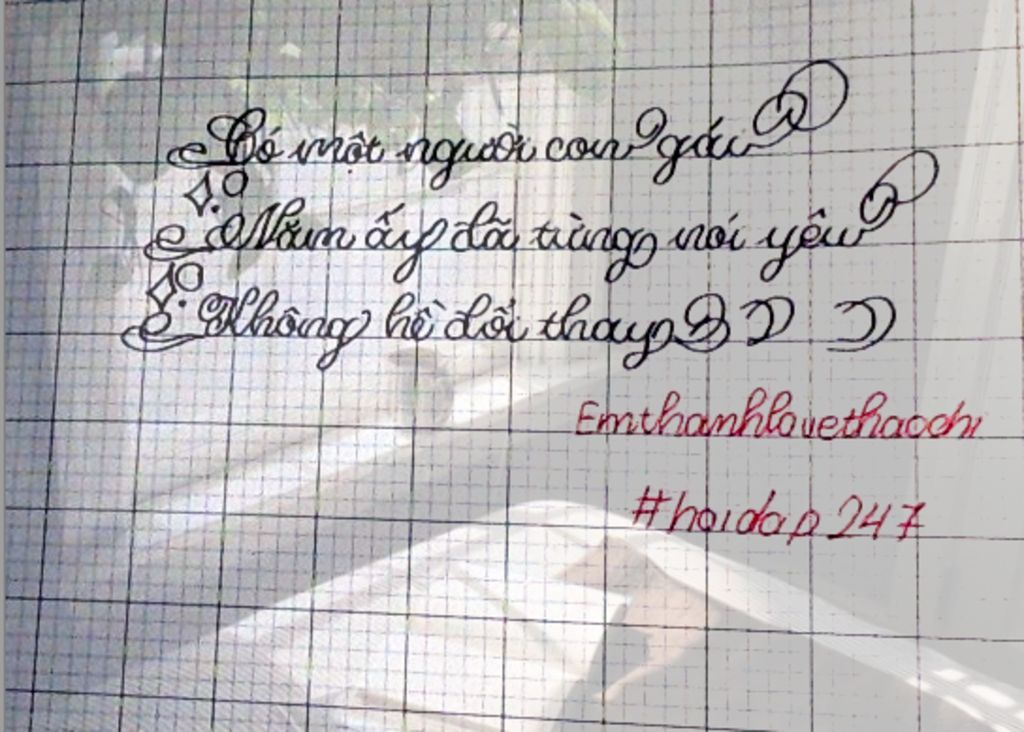 Có một người con gái
Năm ấy đã từng nói yêu
Không hề đổi thay
Emthanhlovethaochi
#hoidap247